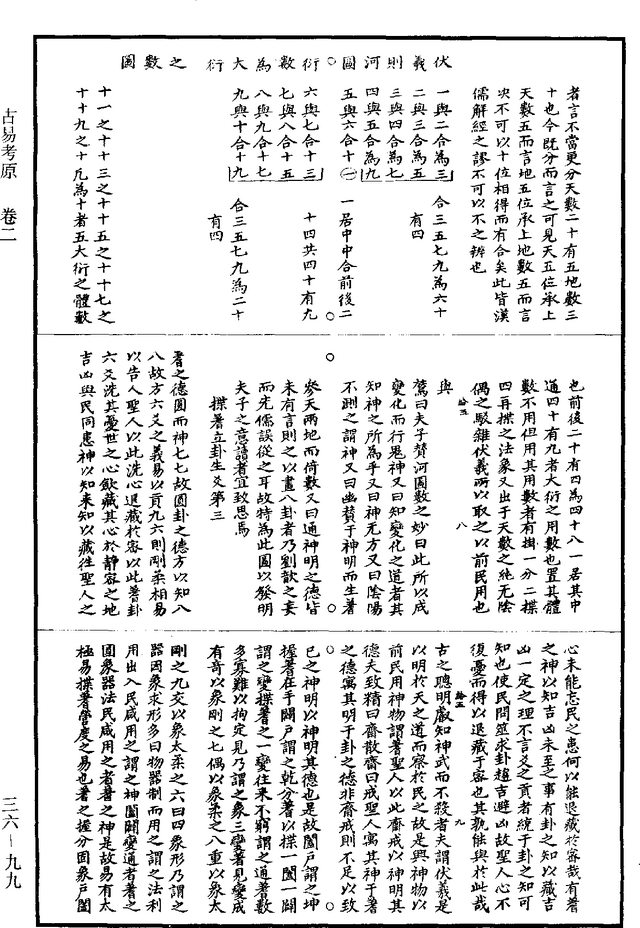 古易考原　卷二
三六－九九
者言不當更分天數二十有五地數三
十也今既分而言之可見天五位承上
天數五而言地五位承上地數五而言
决不可以十位相得而有合矣此皆漢
儒解經之謬不可以不之辨也
伏羲則河圖○衍數為大衍之數圖
一與二合為三
二與三合為五　合三五七九為六十
三與四合為七　有四
四與五合為九
五與六合十一　一居中中合前後二
六與七合十三　十四共四十有九
七與八合十五
八與九合十七　合三五七九為二十
九與十合十九　有四
十一之十十三之十十五之十十七之
十十九之十凡為十者五大衍之體數
也前後二十有四為四十八一居其中
通四十有九者大衍之用數也置其體
數不用但用其用數者有掛一分二揲
四再揲之法象又出于天數之純无陰
偶之駁雜伏羲所以取之以前民用也
與
鶯曰夫子贊河圖數之妙曰此所以成
變化而行鬼神又曰知變化之道者其
知神之所為乎又曰神无方又曰陰陽
不測之謂神又曰幽贊于神明而生蓍
參天兩地而倚數又曰通神明之德皆
未有言則之以畫八卦者乃劉歆之妄
而先儒誤從之耳故特為此圖以發明
夫子之意讀者宜致思焉
揲蓍立卦生爻第三
蓍之德圓而神七七故圓卦之德方以知八
八故方六爻之義易以貢九六則剛柔相易
以告人聖人以此洗心退藏於宻以此蓍卦
六爻洗其憂世之心歛藏其心於靜宻之地
吉凶與民同患神以知来知以藏往聖人之
心未能忘民之患何以能退藏於宻哉有蓍
之神以知吉凶未至之事有卦之知以藏吉
凶一定之理不言爻之貢者統于卦之知可
知也使民問筮求卦趨吉避凶故聖人心不
復憂而得以退藏于宻也其孰能與於此哉
古之聰明叡知神武而不殺者夫謂伏羲是
以明於天之道而察於民之故是興神物以
前民用神物謂蓍聖人以此齋戒以神明其
德夫致精曰齋散齋曰戒聖人寓其神于蓍
之德寓其明于卦之德非齋戒則不足以致
已之神明以神明其德也是故闔戶謂之坤
握蓍在手闢戶謂之乾分蓍以揲一闔一闢
謂之變揲蓍之一變往来不窮謂之通蓍數
多寡難以拘定見乃謂之象三變蓍見變成
有奇以象剛之七偶以象柔之八重以象太
剛之九交以象太柔之六曰四象形乃謂之
器因象求形多曰物器制而用之謂之法利
用出入民咸用之謂之神闔闢變通者蓍之
圓象器法民咸用之者蓍之神是故易有太
極易揲蓍營度之易也蓍之握分固象戶闔